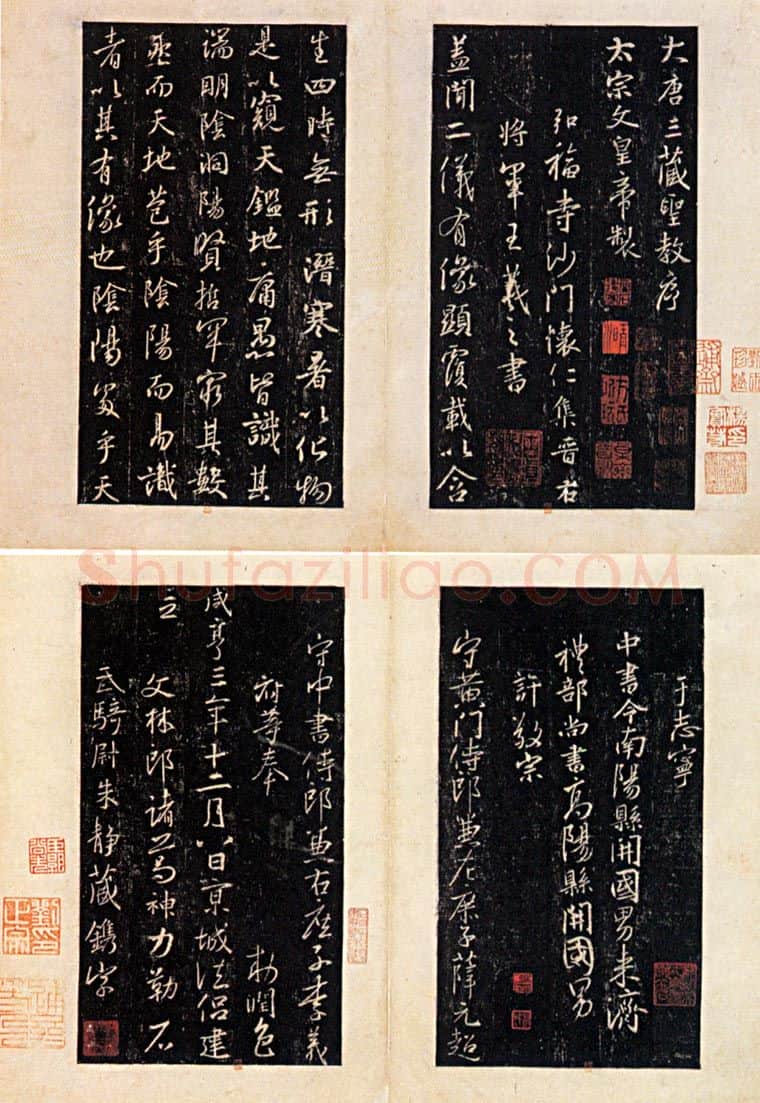 大唐三藏聖教序
太宗文皇帝製
弘福寺沙門懷仁集晉右
將軍王羲之書
蓋聞二儀有像顯覆載以含
生四時無形潛寒暑以化物
是以窺天鑑地庸愚皆識其
端明陰洞陽賢哲罕窮其數
然而天地苞乎陰陽而易識
者以其有像也陰陽處乎天
Shufaziliao.COM
于志寧
中書令南陽縣開國男來濟
禮部尚書高陽縣開國男
許敬宗
守黃門侍郎兼左庶子薛元超
守中書侍郎兼右庶子李義
府等奉 勑潤色
咸亨三年十二月八日京城法侶建
立 文林郎諸葛神力勒石
武騎尉朱靜藏鐫字